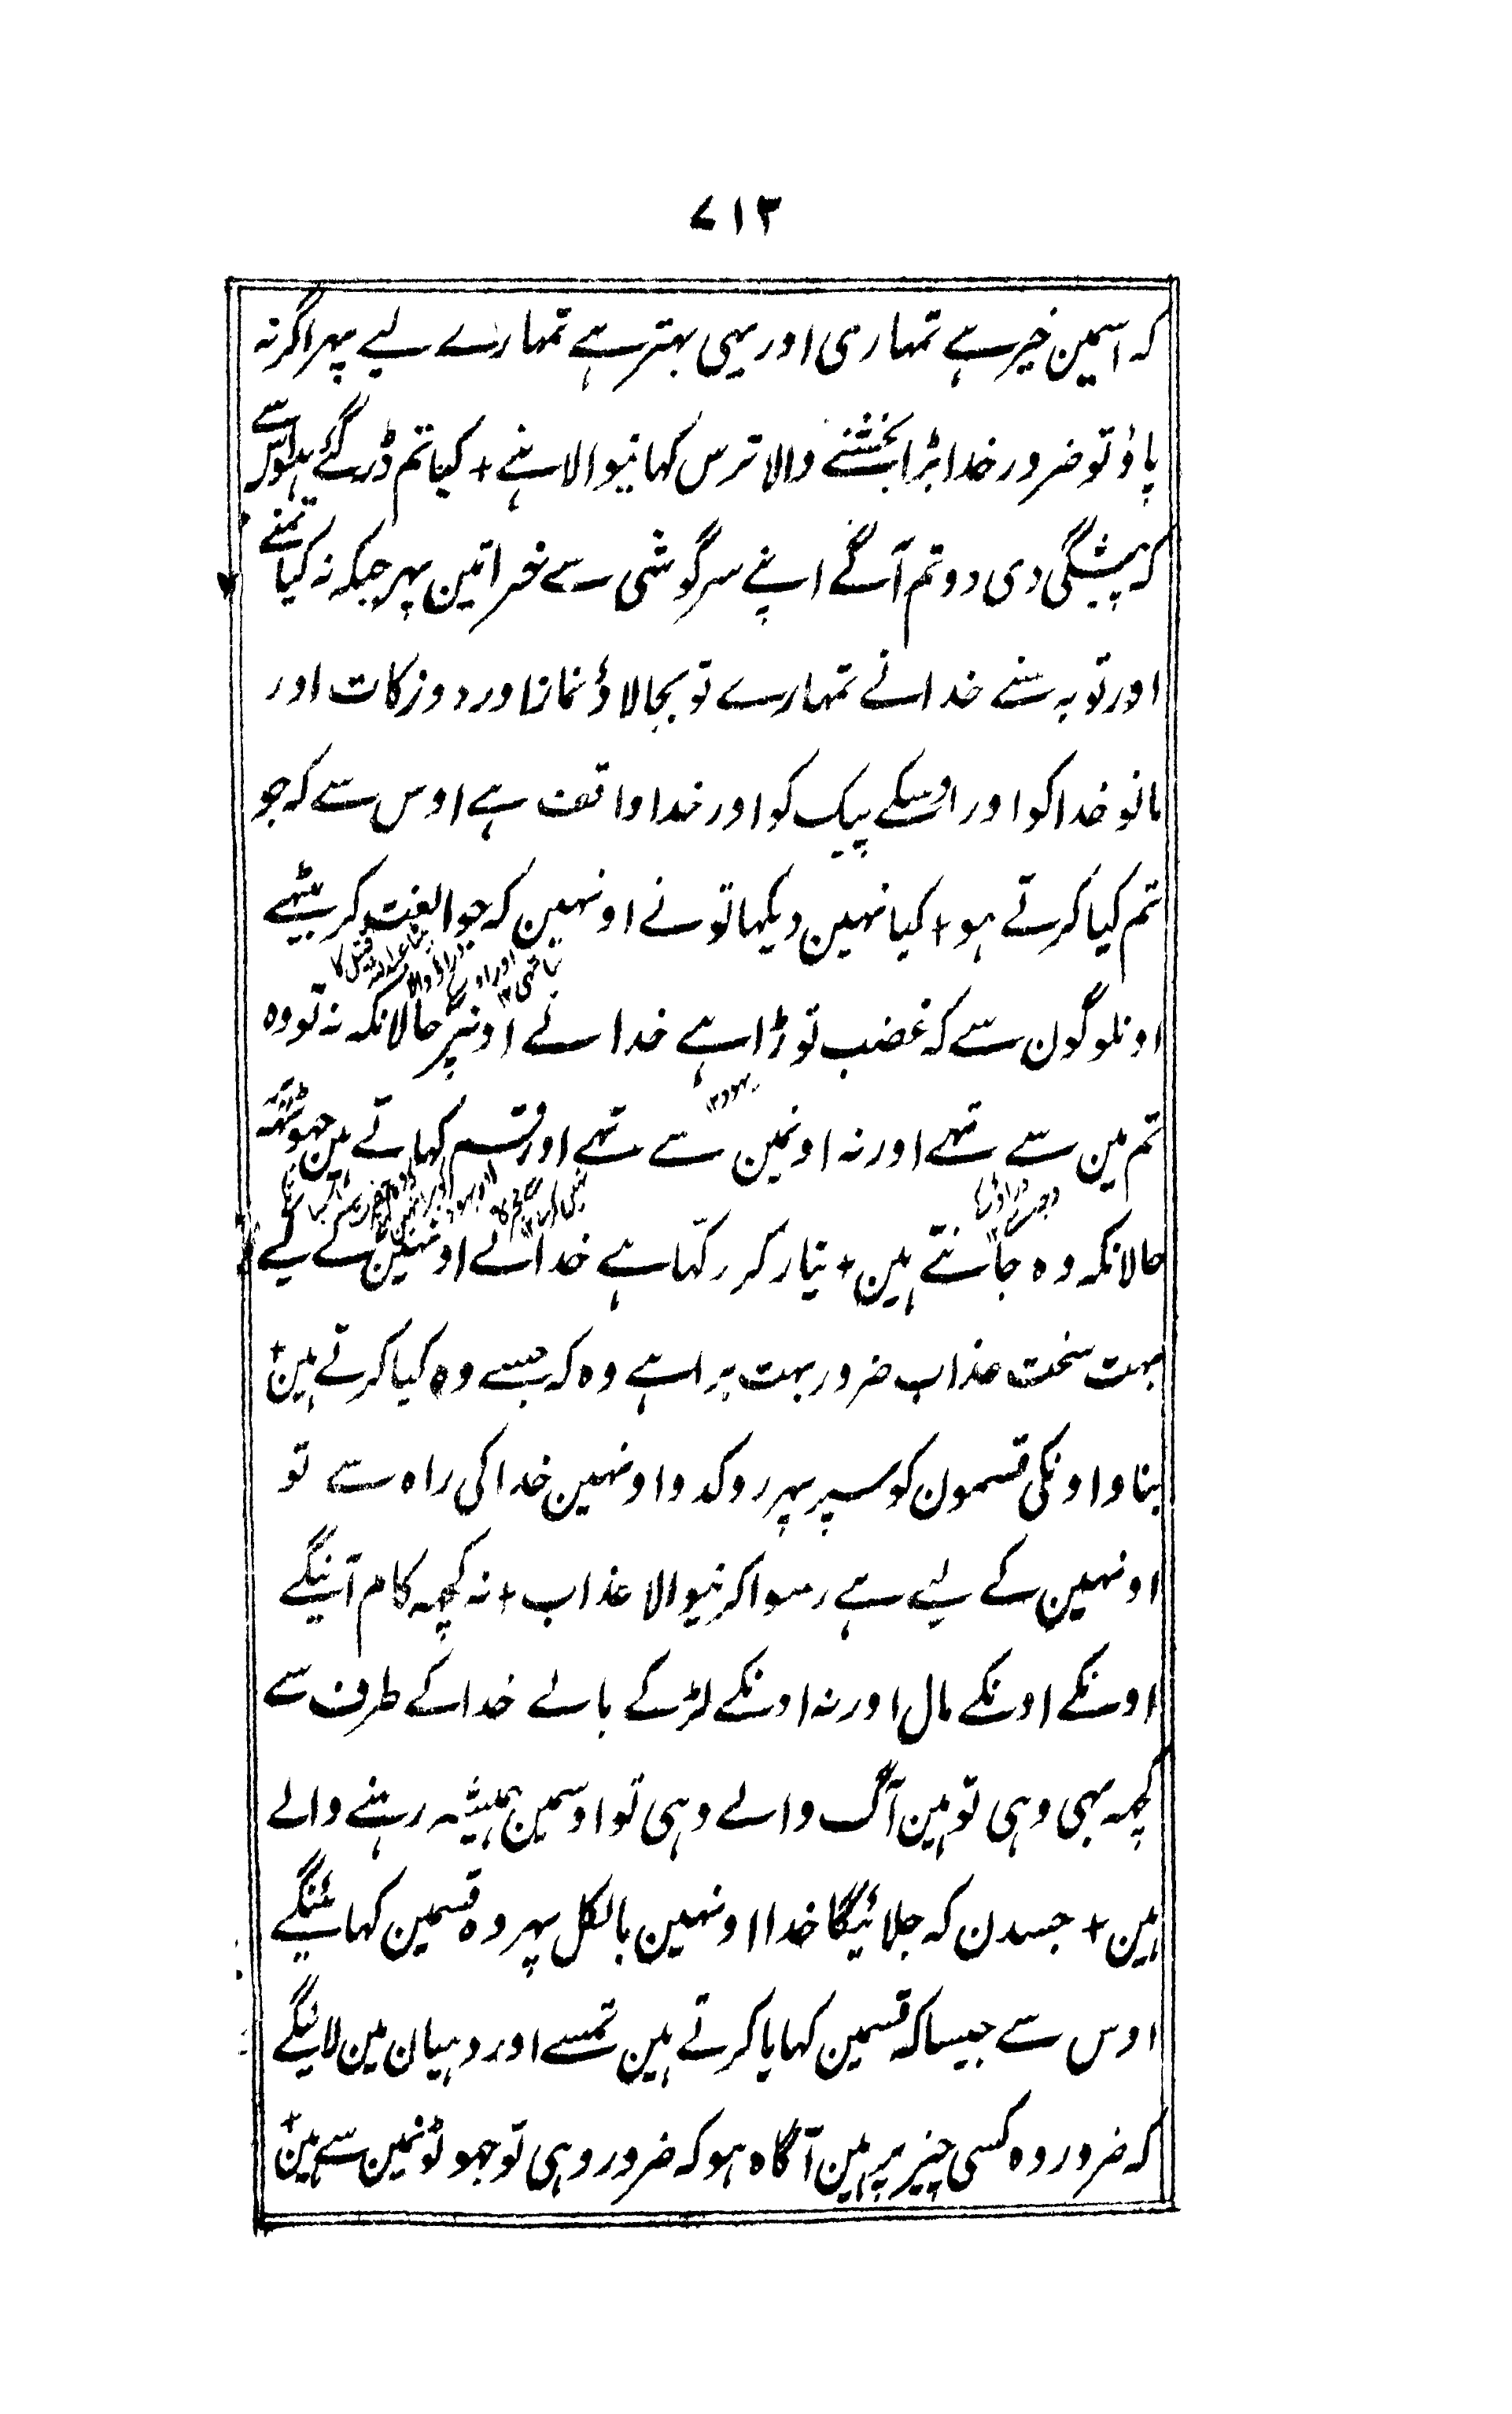 ۷۱۳
کہ اسمین خیر ہے تمہاری اور یہی بہتر ہے تمہارے لیے پہر اگر نہ
پاؤ تو ضرور خدا بڑا بخشنے والا ترس کہانیوالا ہے + کیا تم ڈر گئے ہو اس سے
کہ پیشگی دی دو تم آگے اپنے سرگوشی سے خیراتین پہر جبکہ نہ کیا تمنے
اور توبہ سنے خدا نے تمہارے تو بجا لاؤ نماز اور دو زکات اور
مانو خدا کو اور اوسکے پیک کو اور خدا واقف ہے اوس سے کہ جو
تم کیا کرتے ہو + کیا نہین دیکہا تو نے اونہین کہ جو الفت کر بیٹھے
اونلوگون سے کہ غضب توڑا ہے خدا نے اونپر حالانکہ نہ تو وہ
یہود ۱۲
تم مین سے تہے اور نہ اونمین سے تہے اور قسم کہاتے ہین جہوٹہہ
حالانکہ وہ جانتے ہین + تیار کر رکہا ہے خدا نے اونہین کے لیے
بہت سخت عذاب ضرور بہت برا ہے وہ کہ جسے وہ کیا کرتے ہین +
بنا و اونکی قسمون کو سپر پہر روکدو اونہین خدا کی راہ سے تو
اونہین کے لیے ہے رسوا کرنیوالا عذاب + نہ کچہہ کام آئینگے
اونکے اونکے مال اور نہ اونکے لڑکے بالے خدا کے طرف سے
کچہہ بہی وہی تو ہین آگ والے وہی تو اوسمین ہمیشہ رہنے والے
ہین + جسدن کہ جلائیگا خدا اونہین بالکل پہر وہ قسمین کہائینگے
اوس سے جیسا کہ قسمین کہایا کرتے ہین تمسے اور دہیان مین لائینگے
کہ ضرور وہ کسی چیز پر ہین آگاہ ہو کہ ضرور وہی تو جہوٹونمین سے ہین +